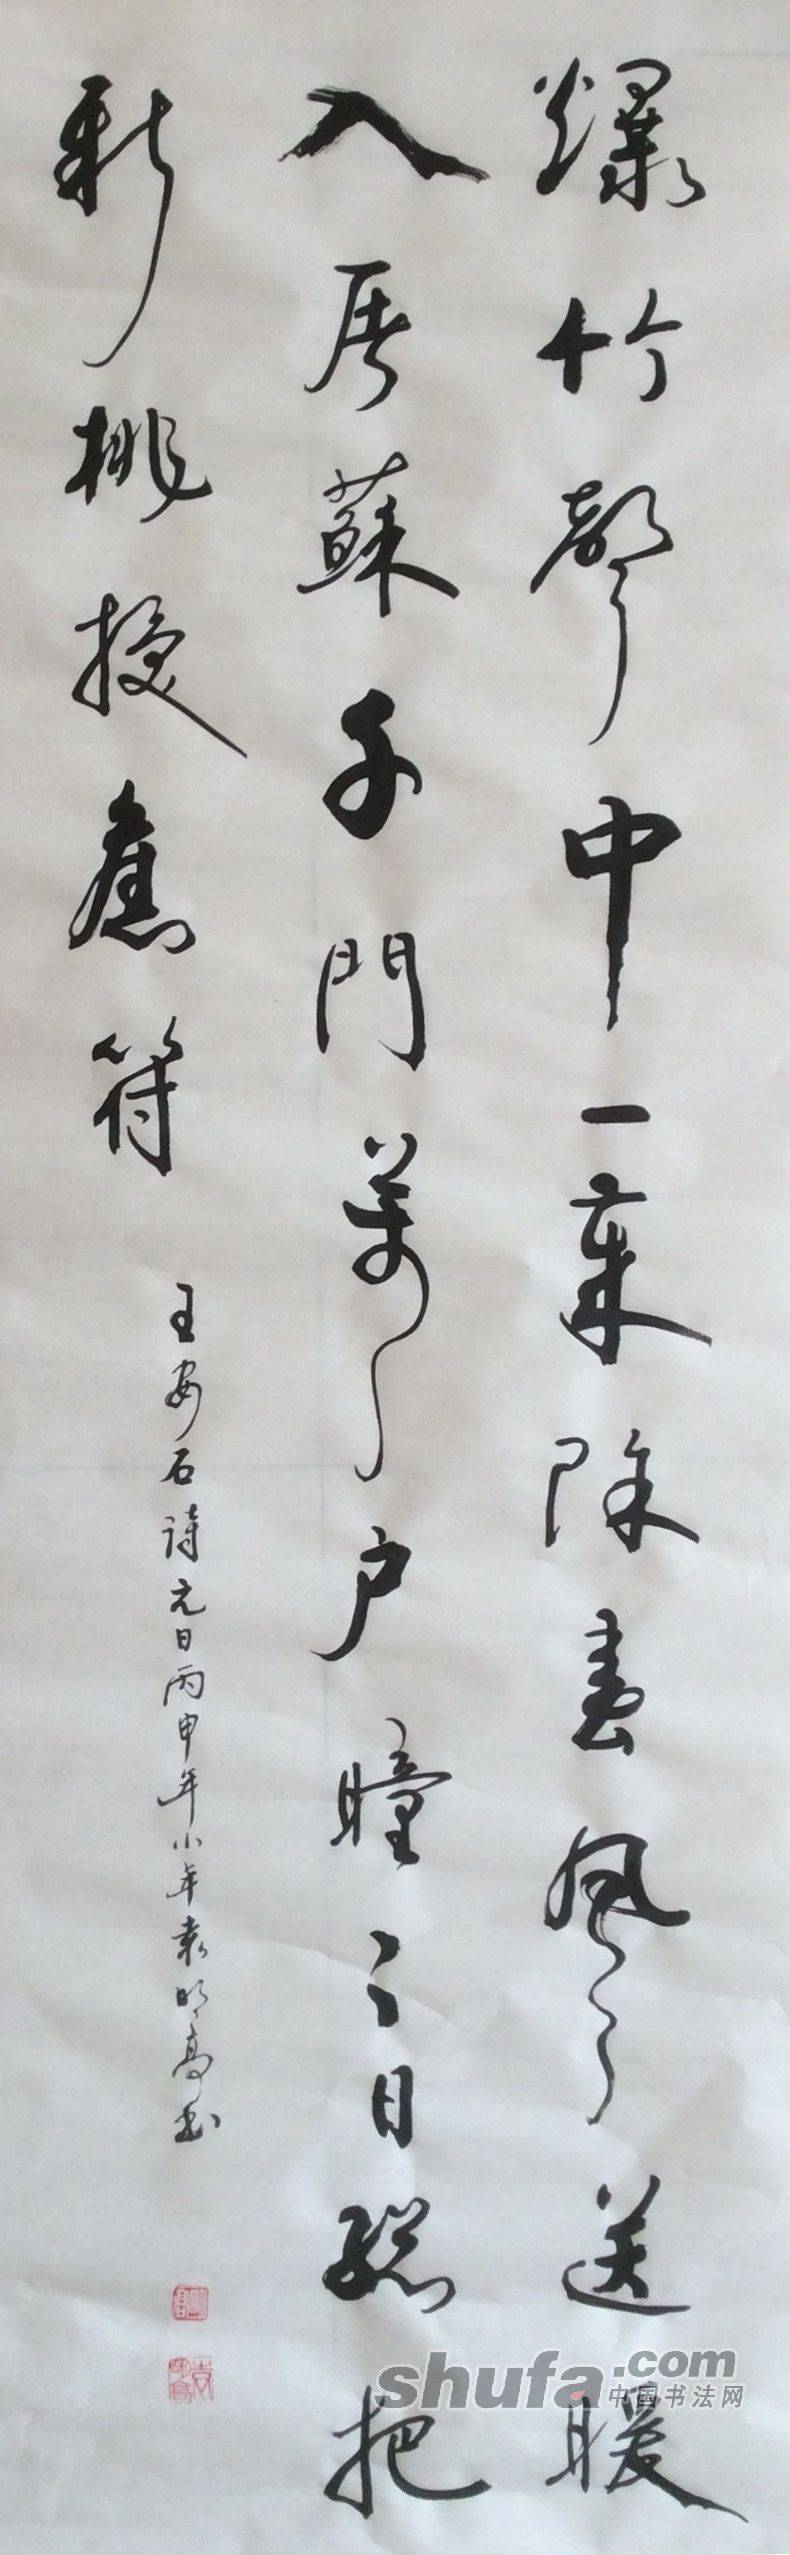 爆竹聲中一歲除春風送暖
入屠蘇千門萬户瞳〻日總把
新桃換舊符
王安石诗元日丙申年小年袁明高书
shufa.com
中国书法网